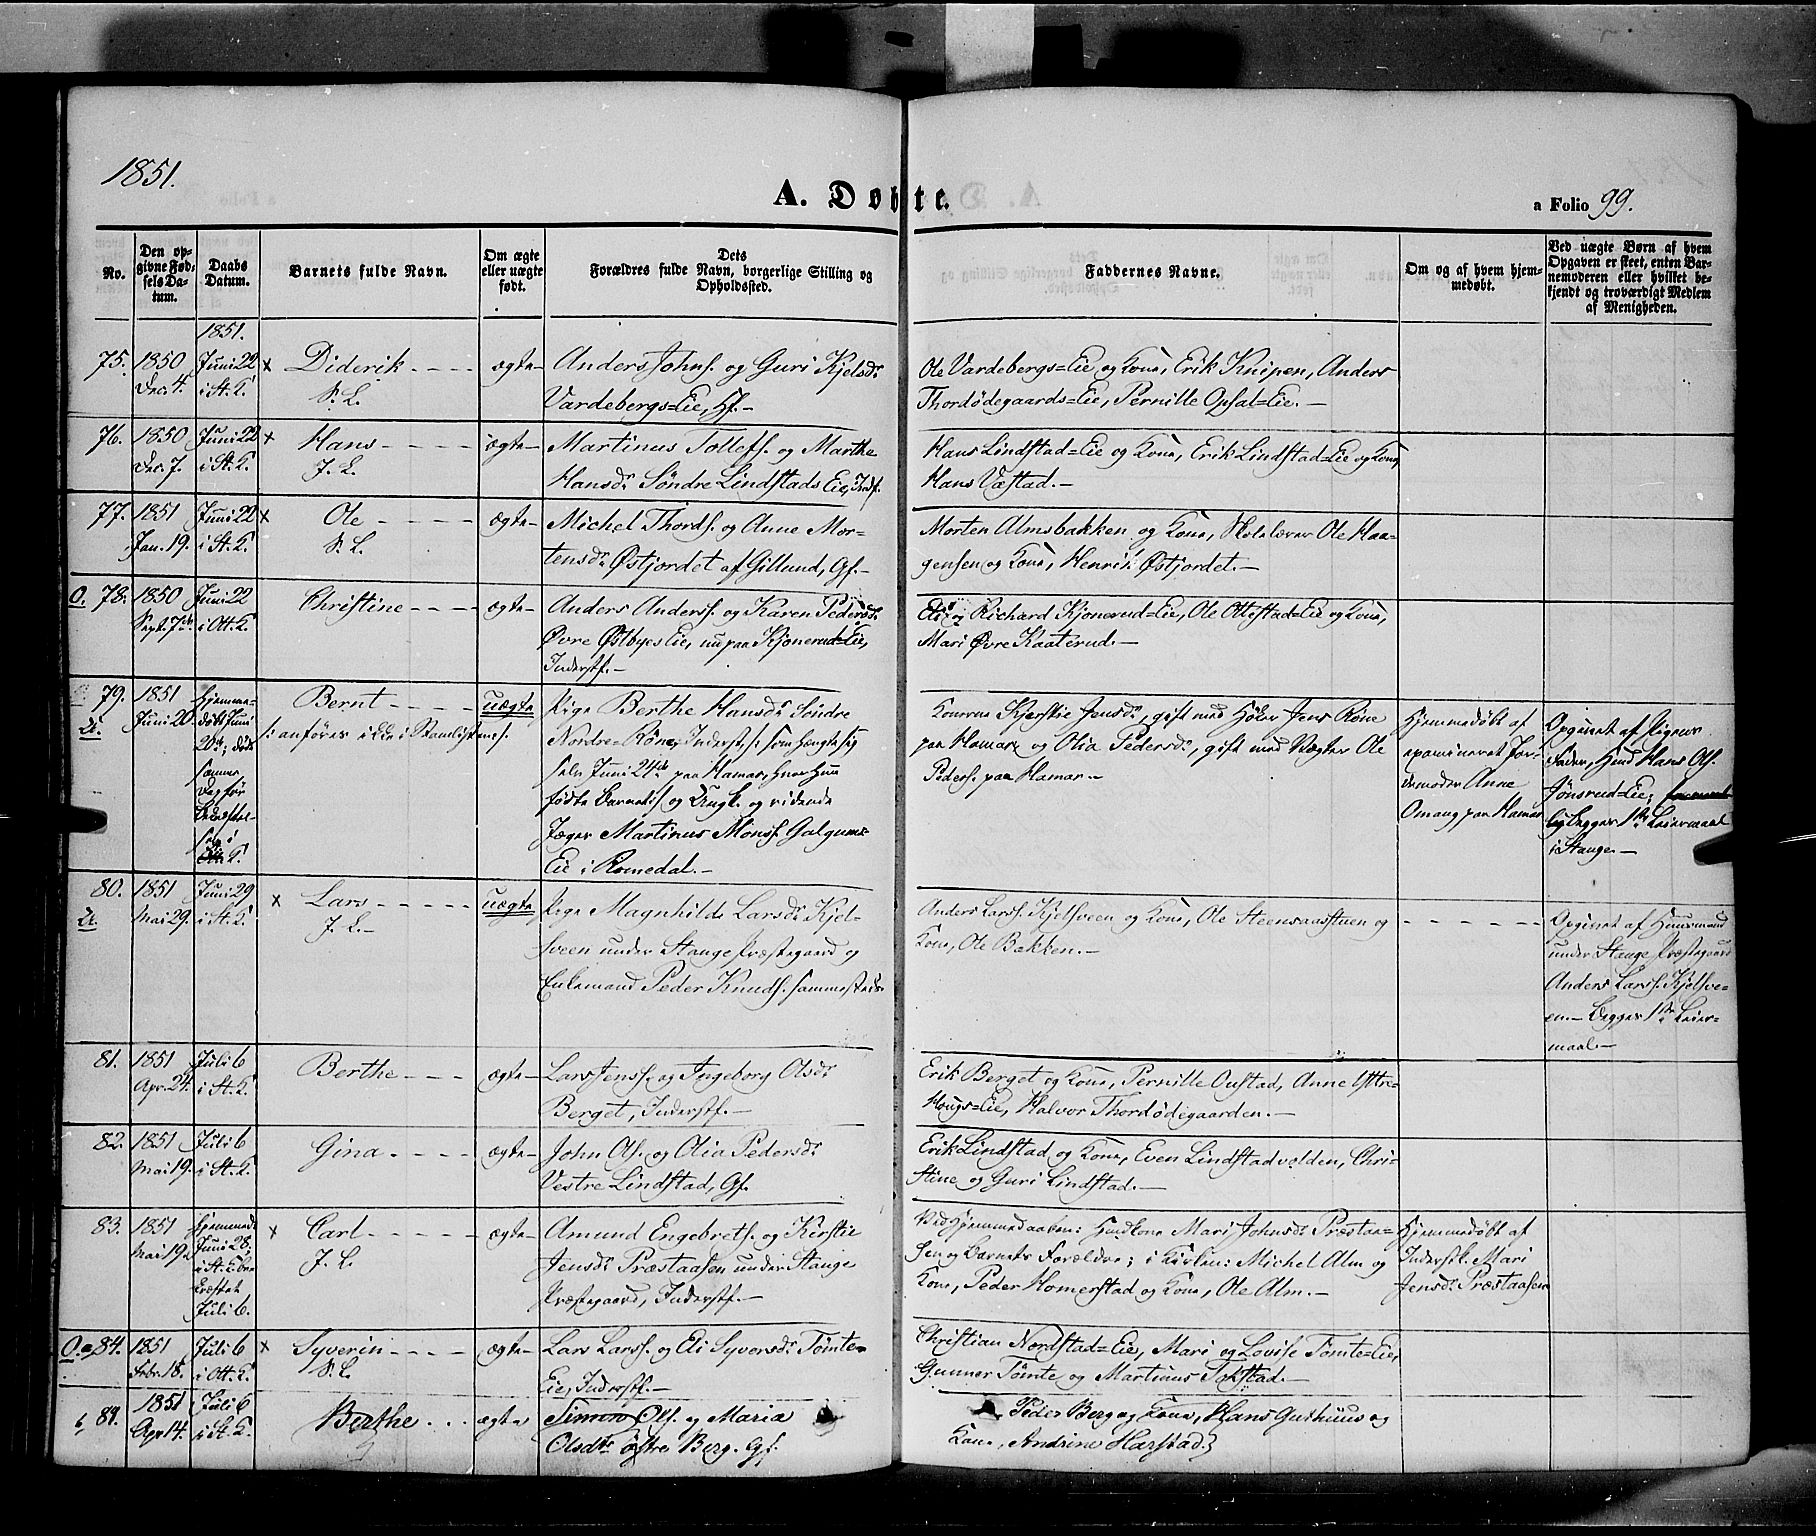 1851.
A. Døbte.
a Folio 99.
No.
Den opgivne Fødsels Datum.
Daabs Datum.
Barnets fulde Navn.
Om ægte eller uægte født.
Dets Forældres fulde Navn, borgerlige Stilling og Opholdssted.
Faddernes Navne.
Om og af hvem hjemmedøbt.
Ved uægte Børn af hvem Opgaven er skeet, enten Barnemoderen eller hvilket bekjendt og troværdigt Medlem af Menigheden.
1851.
75. 1850 Dec. 4. Juni 22 i St. K. × Diderik ægte
Anders Johns. og Guri Kjelsdr
Vardebergs=Eie, Gf.
Ole Vardebergs=Eie og Kone, Erik Knipen, Anders
Thordødegaards=Eie, Pernille Opsal=Eie.
76. 1850 Dec. 7. Juni 22 i St. K. × Hans J. L. ægte
Martinus Tollefs. og Marthe
Hansdr Søndre Lindstads Eie, Inderstf.
Hans Lindstad=Eie og Kone, Erik Lindstad=Eie og Kone,
Hans Væstad.
77. 1851 Jan. 19. Juni 22 i St. K. × Ole ægte
Michel Thords. og Anne Mor-
tensdr Østjordet af Gillund, Gf.
Morten Almsbakken og Kone, Skolelærer Ole Haa-
gensen og Kone, Henrik Østjordet.
O. 78. 1850 Sept. 7de Juni 22 i Ott. K. Christine ægte
Anders Anders. og Karen Pedersdr
Øvre Østbyes Eie, nu paa Kjonerud=Eie,
Inderstf.
Eli og Richard Kjonerud=Eie, Ole Ottestad=Eie og Kone,
Mari Øvre Kaaterud.
79. U. 1851 Juni 20. Hjemmedøbt Juni 20de, døde samme Dag før
Bernt uægte
/: anføres ikke i Stamlisterne :/
Pige Berthe Hansdr Søndre
Nordre-Røne, Inderst, /: som hængte sig
selv Juni 24de paa Hamar, hvor hun
fødte Barnet :/ og Ungk. og ridende
Jæger Martinus Mons. Galgum-
Eie i Romedal.
Konerne Kjerstie Jensdr, gift med Høker Jens Røne
paa Hamar og Olia Pedersdr, gift med Vægter Ole
Peders. paa Hamar.
Hjemmedøbt af
examineret Jor-
demoder Anne
Omang paa Hamar
Opgivet af Pigens
Fader, Huusmd Hans Ols.
Jønsrud=Eie;
Begges 1ste Leiermaal
i Stange.
80. U. 1851 Mai 29. Juni 29 i St. K. × Lars J. L. uægte
Pige Magnhilde Larsdr Kjel-
sveen under Stange Præstegaard og
Enkemand Peder Knuds. sammesteds
Anders Lars. Kjelsveen og Kone, Ole Steensaasstuen og
Kone, Ole Bakken.
Opgivet af Huusmand
under Stange Præstegaard
Anders Lars. Kjelsve-
en. Begges 1ste Leier-
maal
81. 1851 Apr. 24. Juli 6 i St. K. Berthe ægte
Lars Jens. og Ingeborg Olsdr
Berget, Inderstf.
Erik Berget og Kone, Pernille Oustad, Anne Yttre-
Hougs=Eie, Halvor Thordødegaarden.
82. 1851 Mai 19. Juli 6 i St. K. Gina ægte
John Ols. og Olia Pedersdr
Vestre Lindstad, Gf.
Erik Lindstad og Kone, Even Lindstadvolden, Chri-
stine og Guri Lindstad.
83. 1851 Mai 19. Hjemmed. Juni 28; i St. K. be-kræftet Juli 6. × Carl J. L. ægte
Amund Engebrets. og Kirstie
Jensdr Præstaasen under Stange
Præstegaard, Inderstf.
Ved Hjemmedaaben: Huusmkone Mari Johnsdr Præstaa-
sen og Barnets Forældre; i Kirken: Michel Alm og
Kone, Peder Homerstad og Kone, Ole Alm.
Hjemmedøbt af
Inderstk. Mari
Jensdr Præstaasen
O. a 84. 1851 Febr. 18. Juli 6 i Ott. K. × Syverin ægte
Lars Lars. og Eli Syversdr Tømte-
Eie, Inderstf.
Christian Nordstad=Eie, Mari og Lovise Tømte=Eie,
Gunnar Tømte og Martinus Tokstad.
b 84. 1851 Apr 14. Juli 6 i St. K. Berthe ægte
Simon Ols. og Maria
Olsdtr østre Berg. Gf.
Peder Berg og Kone, Hans Guthuus og
Kone, Andrine Harstad.